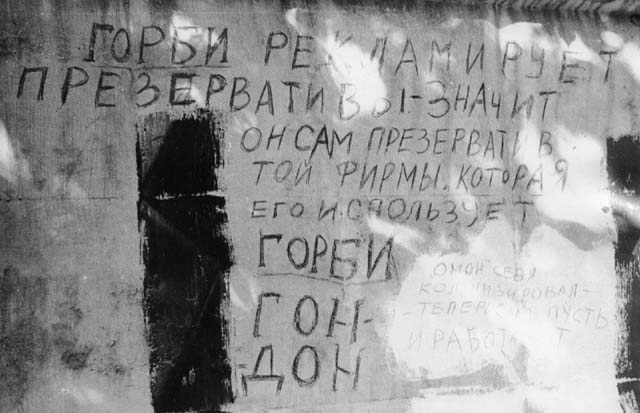 ГОРБИ РЕКЛАМИРУЕТ
ПРЕЗЕРВАТИВЫ-ЗНАЧИТ
ОН САМ ПРЕЗЕРВАТИВ
ТОЙ ФИРМЫ, КОТОРАЯ
ЕГО ИСПОЛЬЗУЕТ
ГОРБИ
ГОН-
ДОН
ОМОН СЕБЯ
-ТЕПЕРЬ ПУСТЬ
И РАБОТАЕТ